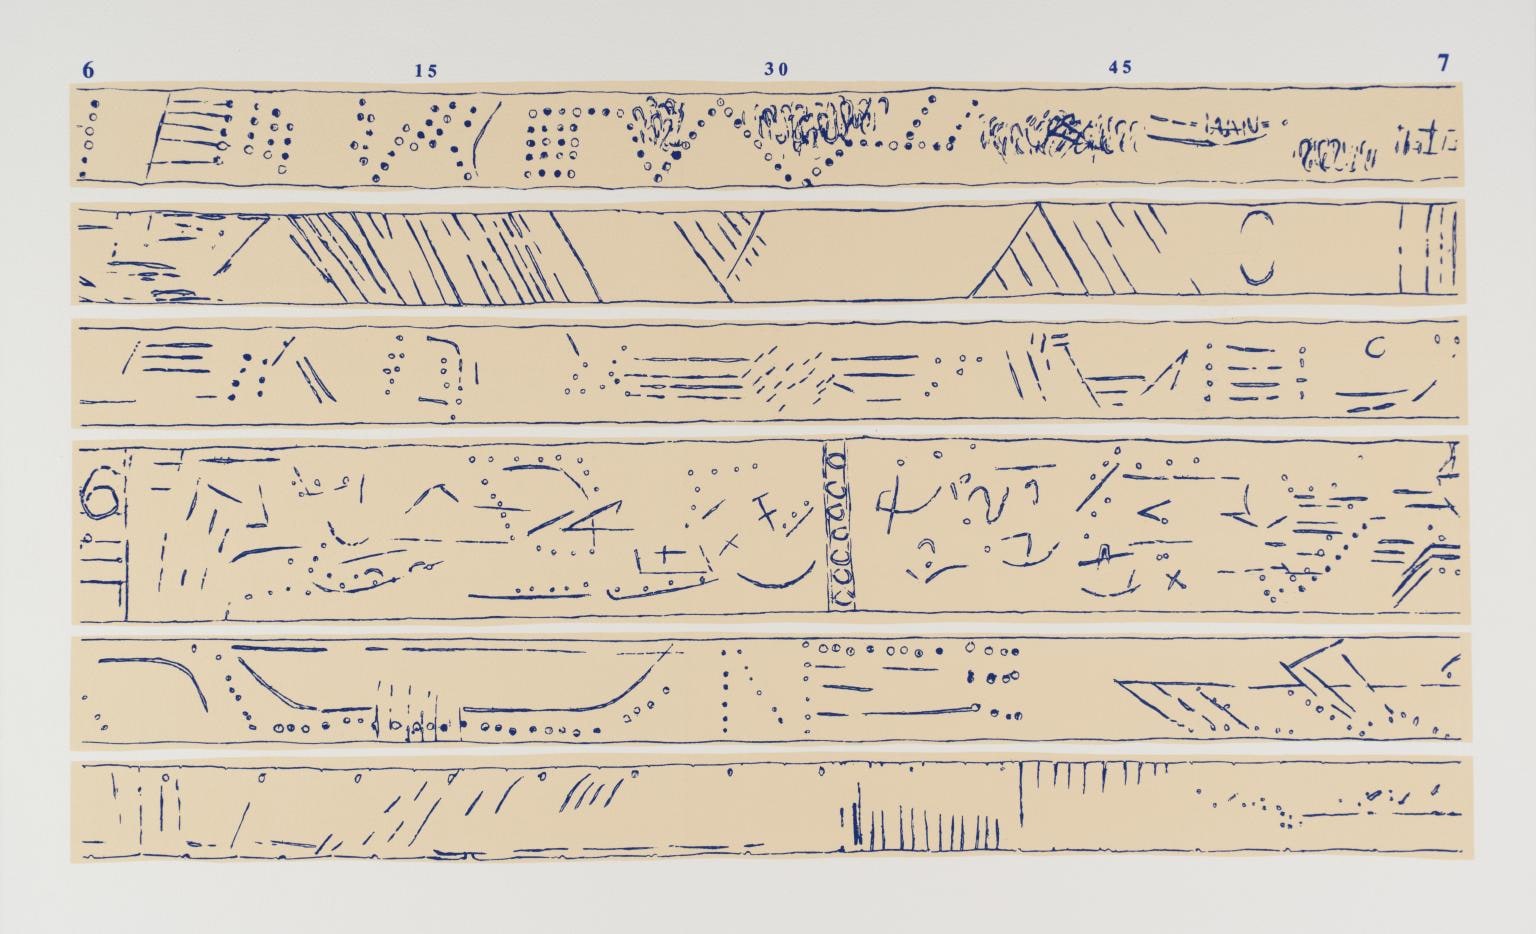 6 15 30 45 7